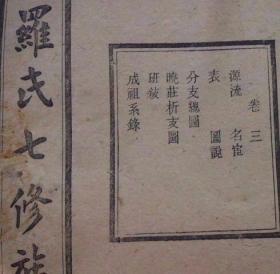 羅氏七修族
卷三
源流　名宦
表　圖說
分支總圖
曉莊析支圖
班筱
成祖系錄